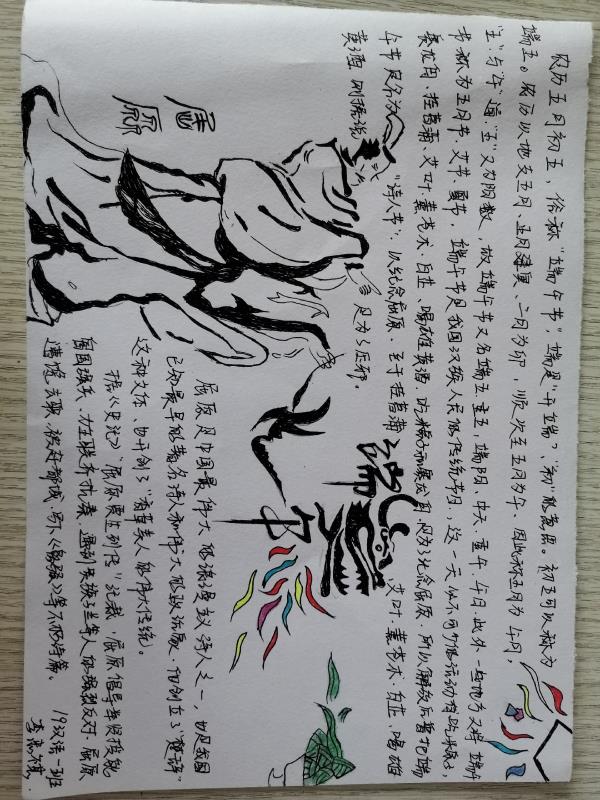 农历五月初五，俗称“端午节”，端是“开端”、“初”的意思。初五可以称为
端五。农历以地支五月、正月建寅、二月为卯，顺次至五月为午，因此称五月为午月，
“五”与“午”通，“五”又为阳数，故端午节又名端五、重五、端阳、中天、重午、午日，此外一些地方又将端午
节称为五月节、艾节、夏节。端午节是我国汉族人民的传统节日，这一天必不可少的活动有吃粽子，
赛龙舟，挂菖蒲、艾叶，薰苍术、白芷，喝雄黄酒。吃粽子和赛龙舟，是为了纪念屈原，所以解放后曾把端
午节定名为“诗人节”，以纪念屈原。至于挂菖蒲、艾叶、薰苍术、白芷、喝雄
黄酒，则据说是为了压邪。
端午
屈原
屈原是中国最伟大的浪漫主义诗人之一，也是我国
已知最早的著名诗人和伟大的政治家，他创立了“楚辞”
这种文体，也开创了“香草美人”的伟大传统。
据《史记》“屈原贾生列传”记载，屈原倡导举贤授能
富国强兵、力主联齐抗秦，遭到贵族子兰等人的强烈反对，屈原
遭馋去职，被赶都城，写下《离骚》等不朽诗篇。
19汉语一班